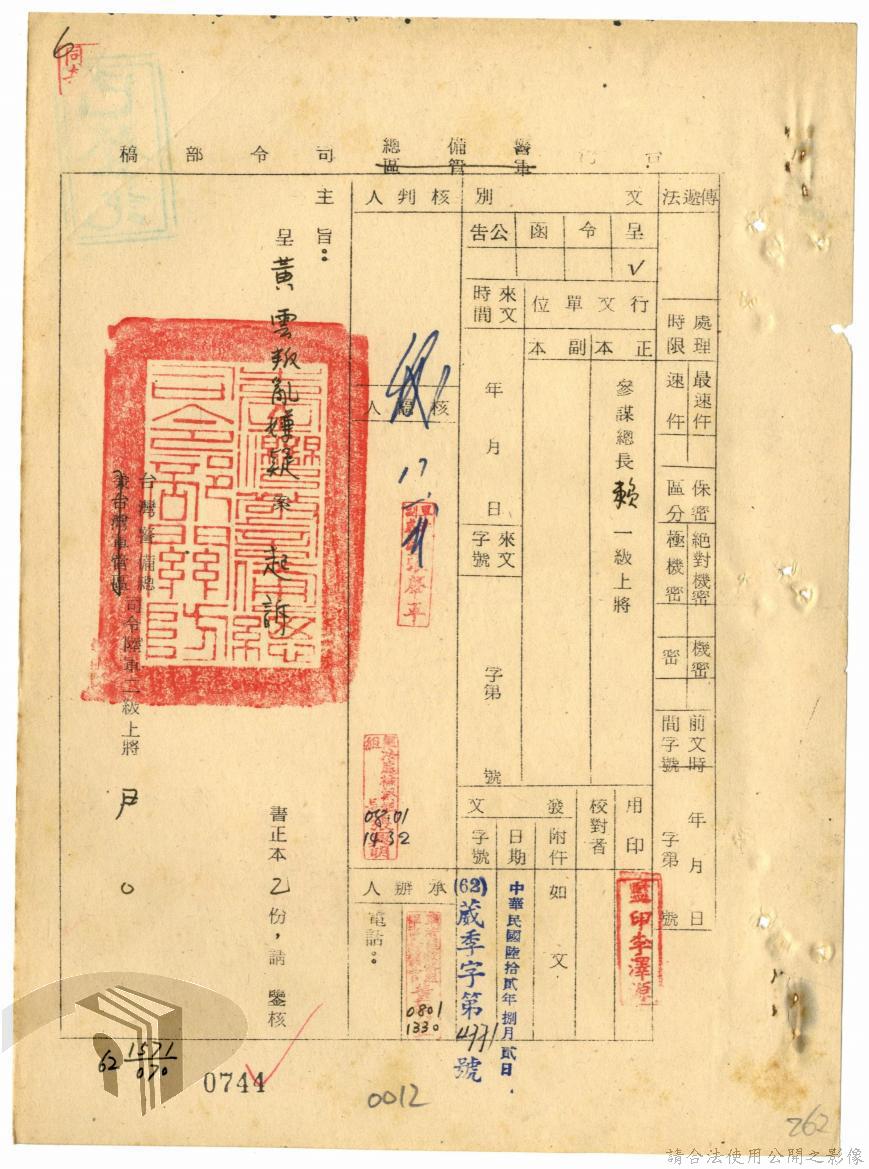 同
6
總 備 警
區 管 軍
稿 部 令 司
傳遞法
處理時限
最速件
速件
保密區分
絕對機密
極機密
機密
密
前文時間字號
年 月 日
字第 號
文別
呈
令
函
公告
✓
行文單位
正本
副本
參謀總長賴一級上將
來文時間
年 月 日
來文字號
字第 號
用印
監印李澤
校對者
發文
附件
如文
日期
中華民國陸拾貳年捌月貳日
字號
(62)蕆季字第4771號
核判人
核稿人
承辦人
電話:
0801
1432
0801
1330
主旨:
呈黃雲叛亂嫌疑案起訴書正本乙份,請鑒核
台灣警備總
兼台灣軍管區
司令陸軍二級上將尹
62 1571/070
0744
0012
262
請合法使用公開之影像